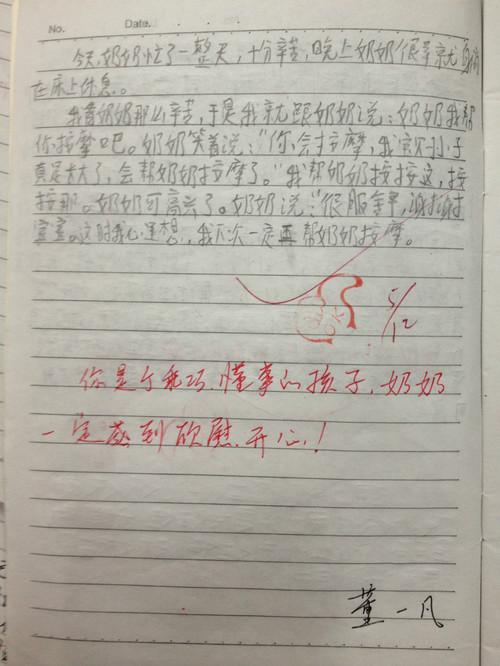 No. Date.
今天奶奶忙了一整天,十分辛苦,晚上奶奶很早就
在床上休息。
我看奶奶那么辛苦,于是我就跟奶奶说:奶奶我帮
你按摩吧。奶奶笑着说:“你会按摩,我家小子
真是长大了,会帮奶奶按摩了。”我帮奶奶按按这,按
按那。奶奶可高兴了。奶奶说:“很服,谢谢
宝宝。这时我心里想,我下次一定再帮奶奶按摩。
OK
5/12
你是个乖巧、懂事的孩子,奶奶
一定感到欣慰、开心!
董一凡